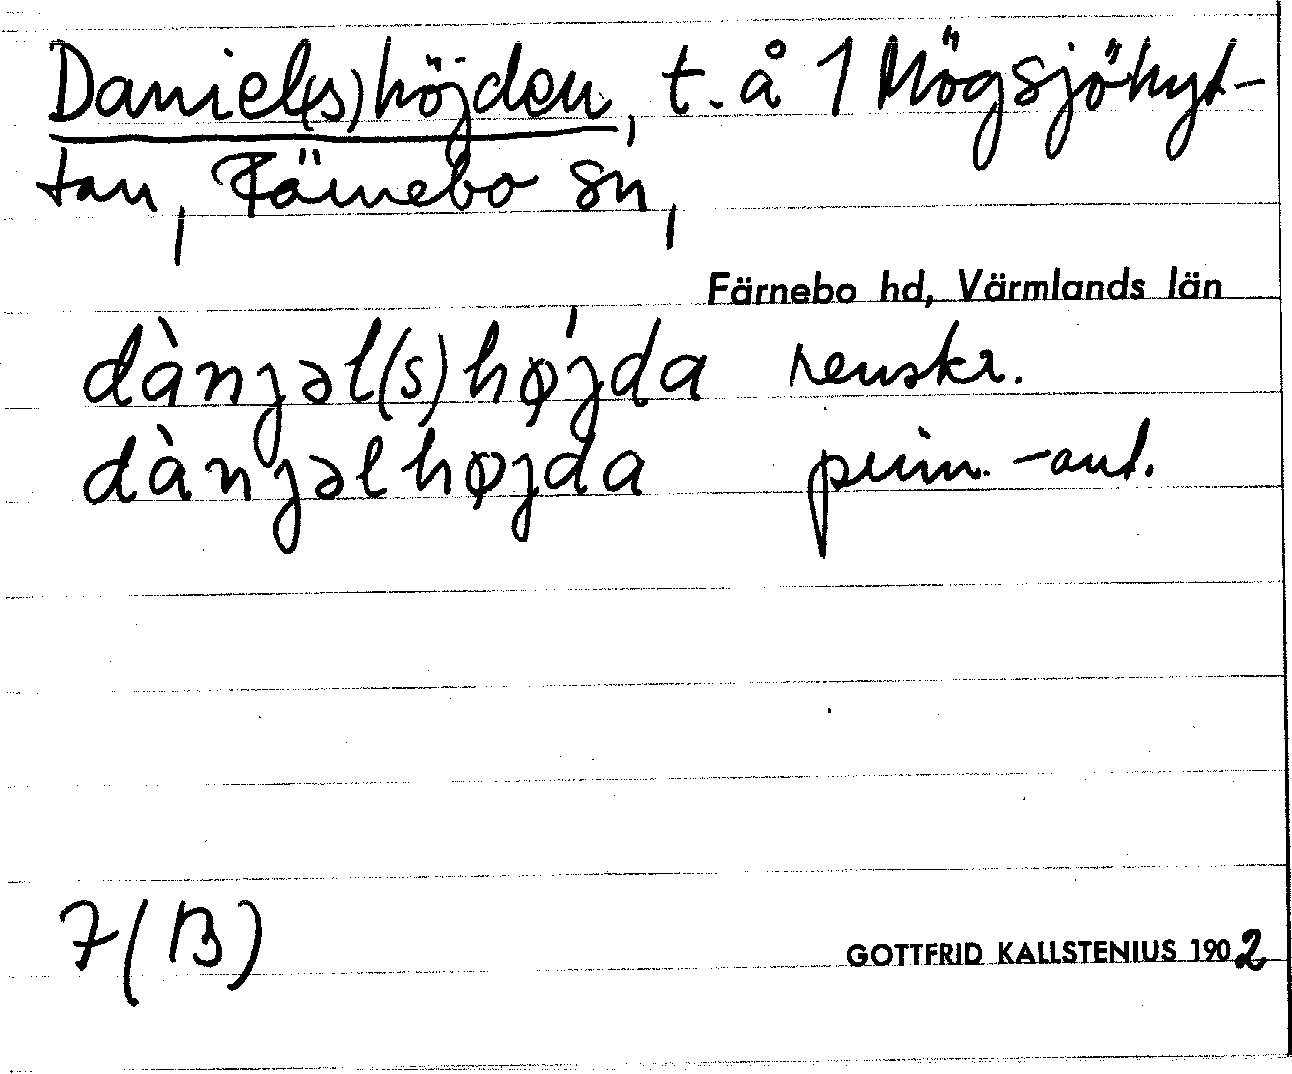 Daniel(s)höjden, t. å 1 Högsjöhyt-
tan, Färnebo sn,
Färnebo hd, Värmlands län
dànjəl(s)høj́da renskr.
dànjəlhøjda prim.-ant.
7 (B)
GOTTFRID KALLSTENIUS 1902